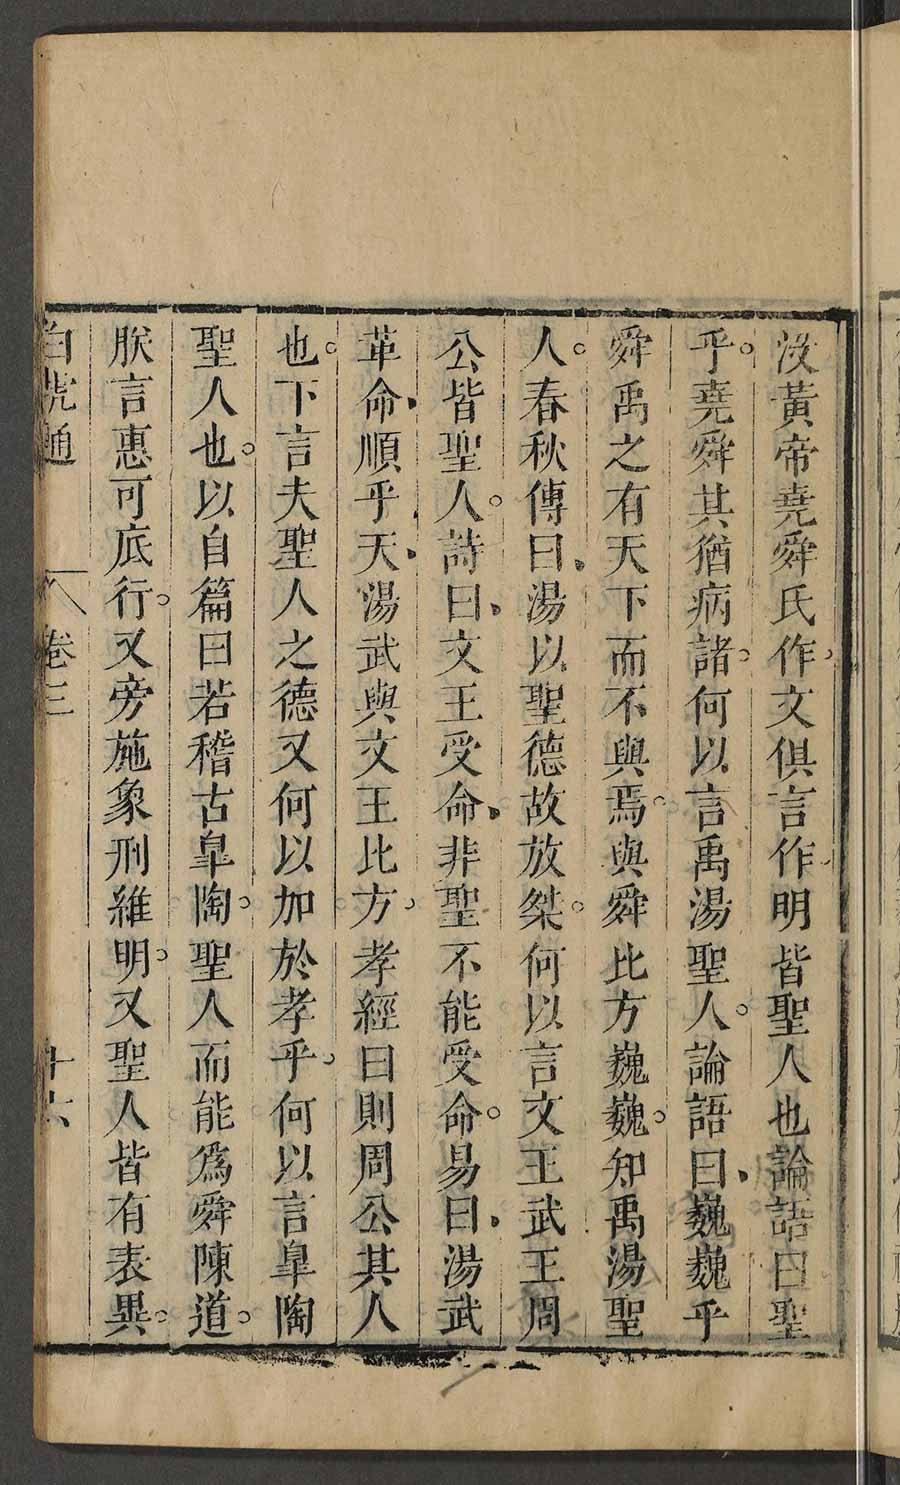 没黃帝堯舜氏作文俱言作明皆聖人也論語曰聖
乎堯舜其猶病諸何以言禹湯聖人論語曰巍巍乎
舜禹之有天下而不與焉與舜比方巍巍知禹湯聖
人春秋傳曰湯以聖德故放桀何以言文王武王周
公皆聖人詩曰文王受命非聖不能受命易曰湯武
革命順乎天湯武與文王比方孝經曰則周公其人
也下言夫聖人之德又何以加於孝乎何以言皐陶
聖人也以自篇曰若稽古皐陶聖人而能爲舜陳道
朕言惠可底行又旁施象刑維明又聖人皆有表異
白虎通 卷三 十六